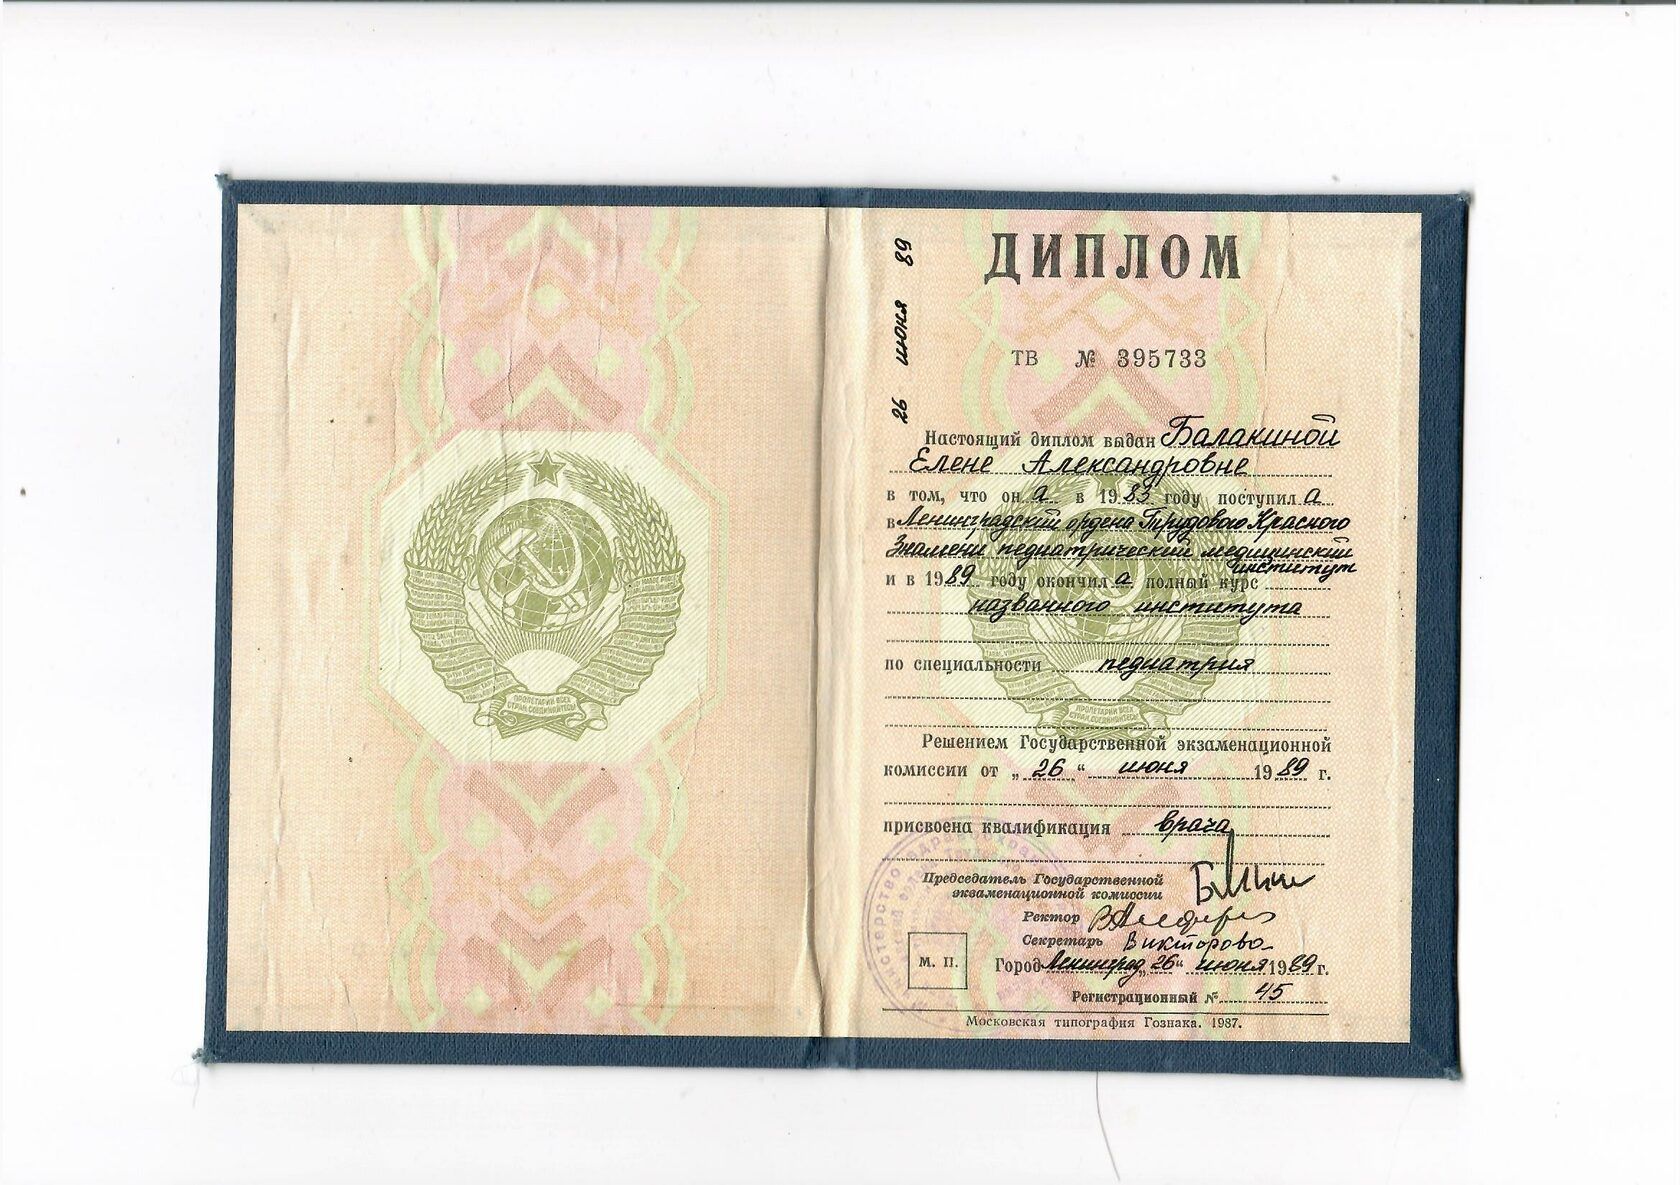 ПРОЛЕТАРИИ ВСЕХ
СТРАН, СОЕДИНЯЙТЕСЬ!
26 июня 89
ДИПЛОМ
ТВ № 395733
Настоящий диплом выдан Балакиной
Елене Александровне
в том, что он а в 1983 году поступил а
в Ленинградский ордена Трудового Красного
Знамени педиатрический медицинский
институт
и в 1989 году окончил а полный курс
названного института
по специальности педиатрия
ПРОЛЕТАРИИ ВСЕХ
СТРАН, СОЕДИНЯЙТЕСЬ!
Решением Государственной экзаменационной
комиссии от „26“ июня 1989 г.
присвоена квалификация врача
Председатель Государственной
экзаменационной комиссии
Ректор
Секретарь Викторова
М. П.
Город Ленинград „26“ июня 1989 г.
Регистрационный № 45
Московская типография Гознака. 1987.